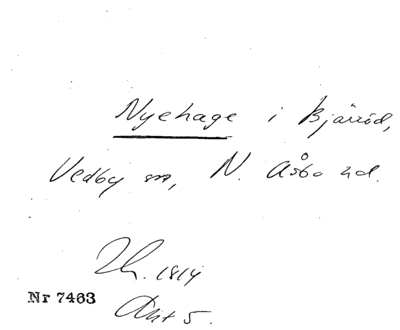 Nyehage i Bjärröd,
Vedby sn, N. Åsbo hd.
Lh. 1814
Nr 7463
Akt 5.